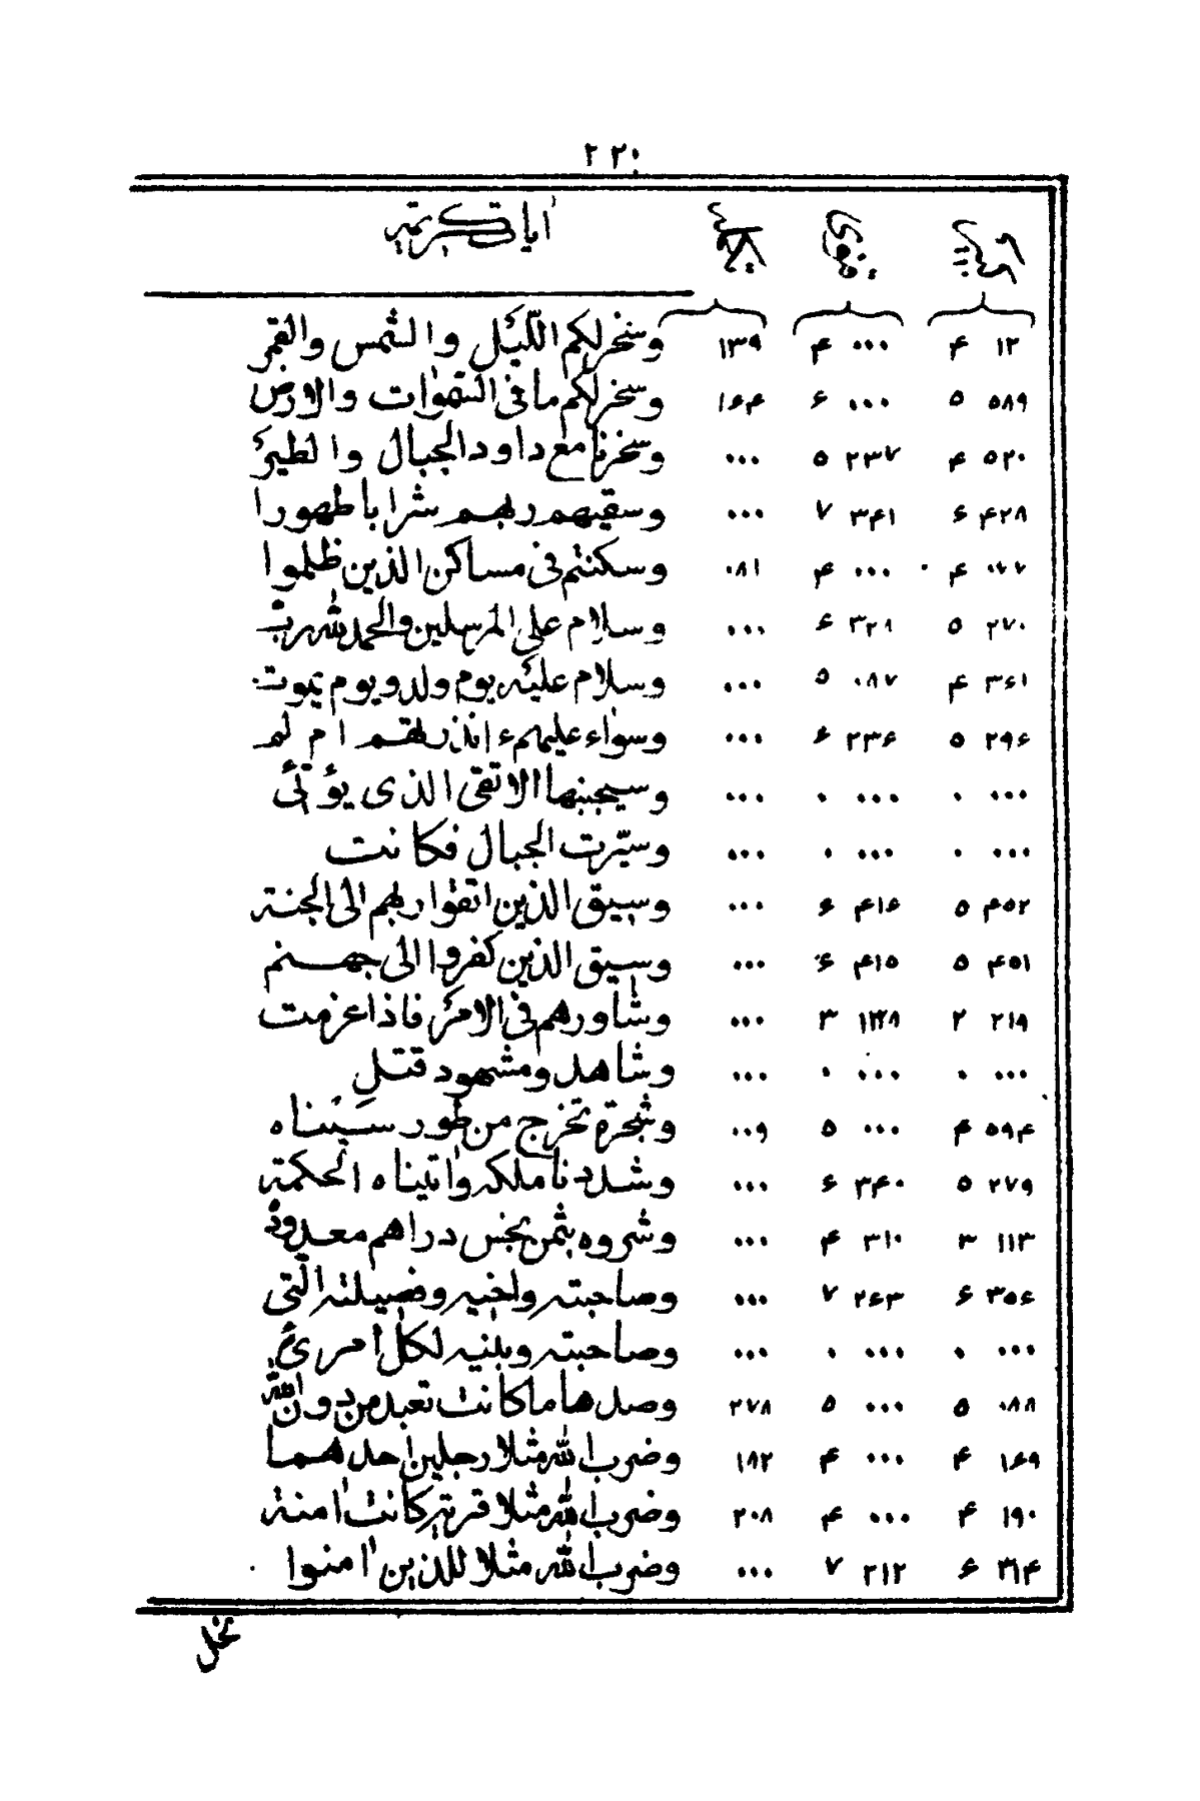 ٢٢٠
آيات كريمه
١٢ ۴ ٠٠٠ ۴ ١٣٩ وسخر لكم الليل والشمس والقمر
٥٨٩ ٥ ٠٠٠ ۶ ١۶۴ وسخر لكم ما فى السموات والارض
٥٢٠ ۴ ٢٣٧ ٥ ٠٠٠ وسخرنا مع داود الجبال والطير
۴٢٨ ۶ ٣۴١ ٧ ٠٠٠ وسقيهم ربهم شرابا طهورا
٠٧٧ ۴ ٠٠٠ ۴ ٠٨١ وسكنتم فى مساكن الذين ظلموا
٢٧٠ ٥ ٣٢٨ ۶ ٠٠٠ وسلام على المرسلين والحمد لله رب
٣۶١ ۴ ٠٨٧ ٥ ٠٠٠ وسلام عليه يوم ولد ويوم يموت
٢٩۶ ٥ ٢٣۶ ۶ ٠٠٠ وسواء عليهم ءانذرتهم ام لم
٠٠٠ ٠ ٠٠٠ ٠ ٠٠٠ وسيجنبها الاتقى الذى يؤتى
٠٠٠ ٠ ٠٠٠ ٠ ٠٠٠ وسيّرت الجبال فكانت
۴٥٢ ٥ ۴١۶ ۶ ٠٠٠ وسيق الذين اتقوا ربهم الى الجنة
۴٥١ ٥ ۴١٥ ۶ ٠٠٠ وسيق الذين كفروا الى جهنم
٢١٩ ٢ ٣ ٠٠٠ وشاورهم فى الامر فاذا عزمت
٠٠٠ ٠ ٠٠٠ ٠ ٠٠٠ وشاهد ومشهود قتل
٥٩۴ ۴ ٠٠٠ ٥ ٠٠٩ وشجرة تخرج من طور سيناه
٢٧٩ ٥ ٣۴٠ ۶ ٠٠٠ وشددنا ملكه واتيناه الحكمة
١١٣ ٣ ٣١٠ ۴ ٠٠٠ وشروه بثمن بخس دراهم معدودة
٣٥۶ ۶ ٢۶٣ ٧ ٠٠٠ وصاحبته واخيه وفصيلته الّتى
٠٠٠ ٠ ٠٠٠ ٠ ٠٠٠ وصاحبته وبنيه لكل امرئ
٠٨٨ ٥ ٠٠٠ ٥ ٢٧٨ وصدها ما كانت تعبد من دون الله
١۶٩ ۴ ٠٠٠ ۴ ١٨٢ وضرب الله مثلا رجلين احدهما
١٩٠ ۴ ٠٠٠ ۴ ٢٠٨ وضرب الله مثلا قرية كانت امنة
٣١۴ ۶ ٢١٢ ٧ ٠٠٠ وضرب الله مثلا للذين امنوا